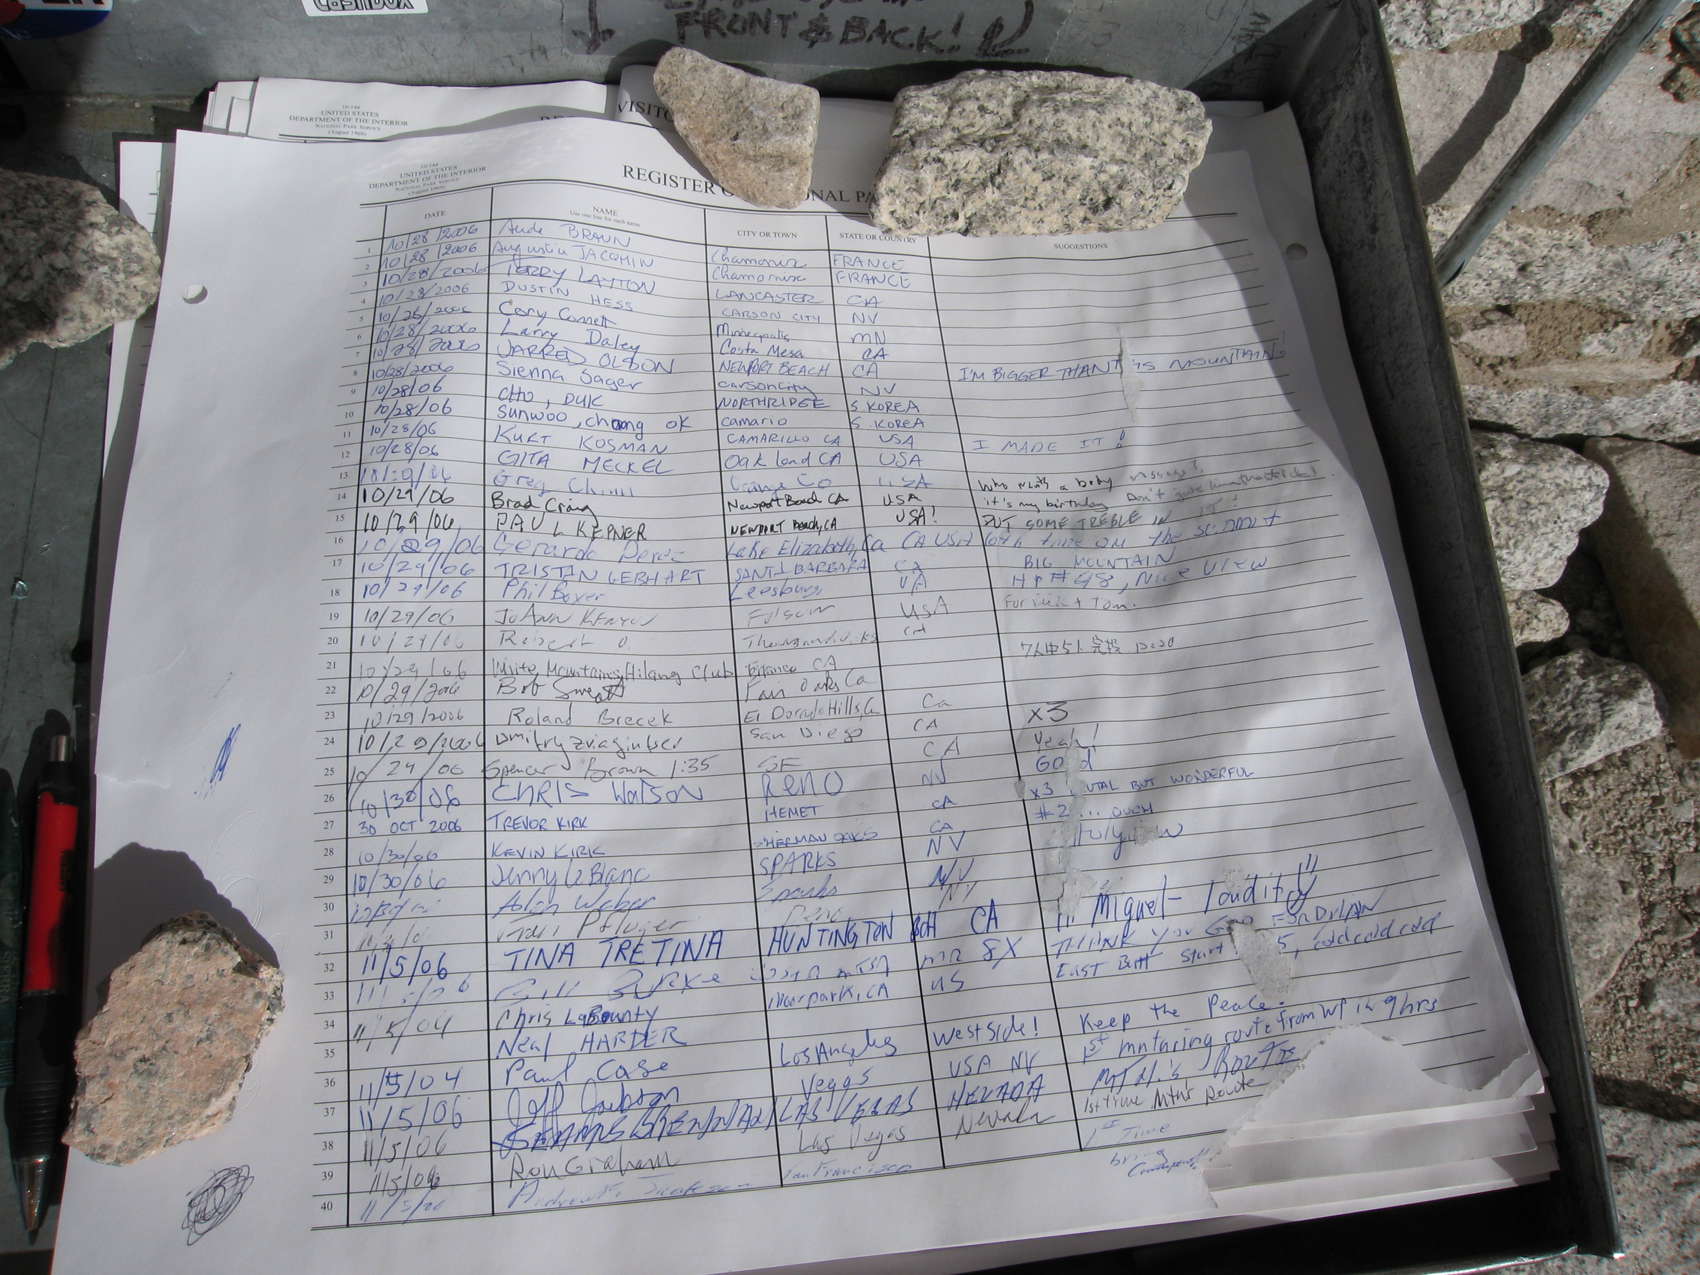 CashBox
FRONT & BACK!
10-144
UNITED STATES
DEPARTMENT OF THE INTERIOR
National Park Service
(August 1960)
VISITO
10-144
UNITED STATES
DEPARTMENT OF THE INTERIOR
National Park Service
REGISTER O ONAL PA
DATE NAME CITY OR TOWN STATE OR COUNTRY SUGGESTIONS
Use one line for each name
1 10/28/2006 Aude BRAUN Chamonix FRANCE
2 10/28/2006 Augustin JACOMIN Chamonix FRANCE
3 10/28/2006 TERRY LAYTON LANCASTER CA
4 10/28/2006 DUSTIN HESS CARSON CITY NV
5 10/28/2006 Cory Minneapolis MN
6 10/28/2006 Larry Daley Costa Mesa CA
7 10/28/2006 JARRED OLSON NEWPORT BEACH CA I'M BIGGER THAN THIS MOUNTAIN!
8 10/28/2006 Sienna Sager Carson City NV
9 10/28/06 CHO, DUK NORTHRIDGE S. KOREA
10 10/28/06 Sunwoo, chong ok camario S. KOREA
11 10/28/06 KURT KOSMAN CAMARILLO CA USA I MADE IT!
12 10/28/06 GITA MECKEL Oakland CA USA
13 Greg Orange Co USA Who wants a body message?
14 10/29/06 Brad Craig Newport Beach CA USA it's my birthday Don't
15 10/29/06 PAUL KEPNER NEWPORT Beach, CA USA! PUT SOME TREBLE IN IT!
16 10/29/06 Gerardo Perez Lake Elizabeth, Ca CA USA 6th time on the summit
17 10/29/06 TRISTIN GEBHART SANTA BARBARA CA BIG MOUNTAIN
18 10/29/06 Phil Boyer Leesburg VA HP #48, NICE VIEW
19 10/29/06 JoAnn Folsom USA For + Tom.
20 10/29/06 Robert O. Thousand Oaks CA
21 10/29/06 White Mountains Hiking Club CA
22 10/29/2006 Bob Sweatt Fair Oaks Ca
23 10/29/2006 Roland Brecek El Dorado Hills, Ca Ca x3
24 10/29/2006 Dmitry San Diego CA Yeah!
25 10/29/06 Spencer Brown 1:35 SF CA Good
26 10/30/06 CHRIS WATSON RENO NV x3 BRUTAL BUT WONDERFUL
27 30 OCT 2006 TREVOR KIRK HEMET CA #2... OUCH
28 10/30/06 KEVIN KIRK SHERMAN OAKS CA
29 10/30/06 Jenny LeBlanc SPARKS NV
30 Weber Sparks NV
31 Pfluger Reno NV Miguel-
32 11/5/06 TINA TRETINA HUNTINGTON BCH CA THANK YOU DYLAN
33 Burke East Butt Start
34 Chris LaBounty Moorpark, CA US
35 Neal HARDER Keep the Peace.
36 11/5/04 Paul Case Los Angeles West side! 1st mntaring route from WP in 9 hrs
37 11/5/06 Jeff Vegas USA NV ROUTE
38 11/5/06 SEAMUS BRENNAN LAS VEGAS NEVADA 1st time Mtns Route
39 11/5/06 Ron Graham Las Vegas Nevada 1st Time
40 San Francisco